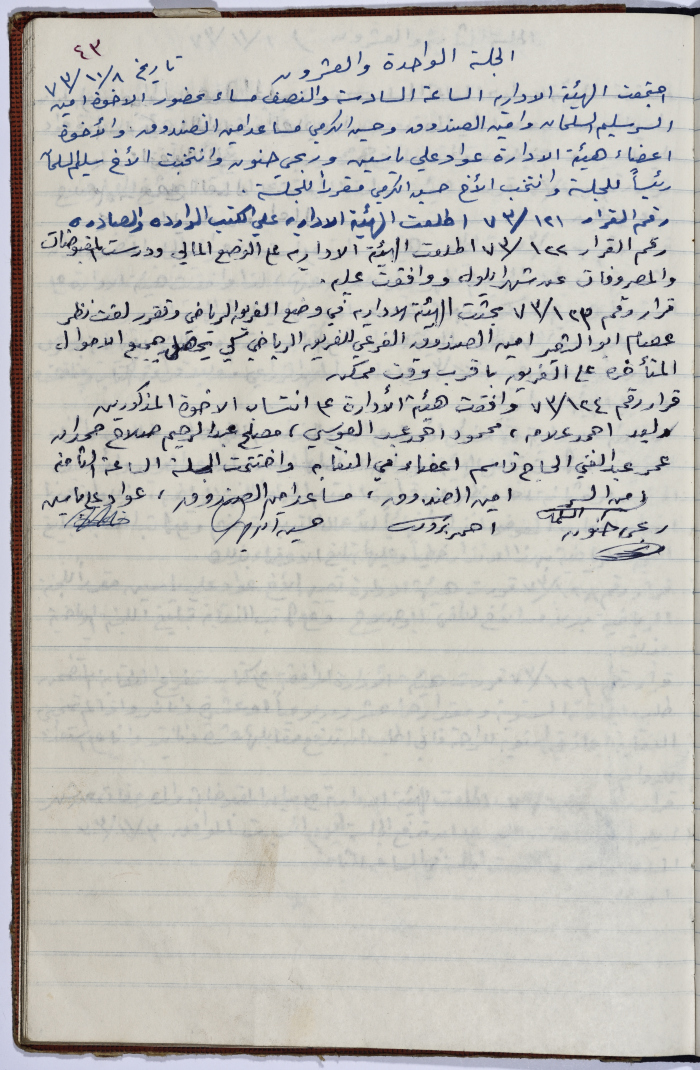 ٤٣
الجلسة الواحدة والعشرون
تاريخ ٧٣/١١/٨
اجتمعت الهيئة الاداريه الساعة السادسة والنصف مساء بحضور الاخوة امين
السر سليم السلمان وامين الصندوق وحسن الكرمي مساعد امين الصندوق والأخوة
اعضاء هيئة الادارة عواد علي ياسين وربحي حنون وانتخبت الأخ سليم السلمان
رئيساً للجلسة وانتخب الأخ حسين الكرمي مقررا للجلسة .
رقم القرار ٧٣/١٢١ اطلعت الهيئة الاداريه على الكتب الوارده والصادره
رقم القرار ٧٣/١٢٢ اطلعت الهيئة الاداريه على الوضع المالي ودرست المقبوضات
والمصروفات عن شهر ايلول ووافقت عليه .
قرار رقم ٧٣/١٢٣ بحثت الهيئة الاداريه في وضع الفريق الرياضي وتقرر لفت نظر
عصام ابو الشعير امين الصندوق الفرعي للفريق الرياضي لكي يحصل جميع الاموال
المتأخره على الفريق باقرب وقت ممكن
قرار رقم ٧٣/١٢٤ وافقت هيئة الأدارة على انتساب الاخوة المذكورين
وليد احمد علامه ، محمود احمد عبد الموسى ، مصلح عبد الرحيم صلاح حمدان
عمر عبد الغني الحاج قاسم اعضاء في النقابه واختتمت الجلسة الساعة الثامنة
امين السر امين الصندوق ، مساعد امين الصندوق ، عواد علي ياسين
ربحي حنون احمد حسين الكرمي